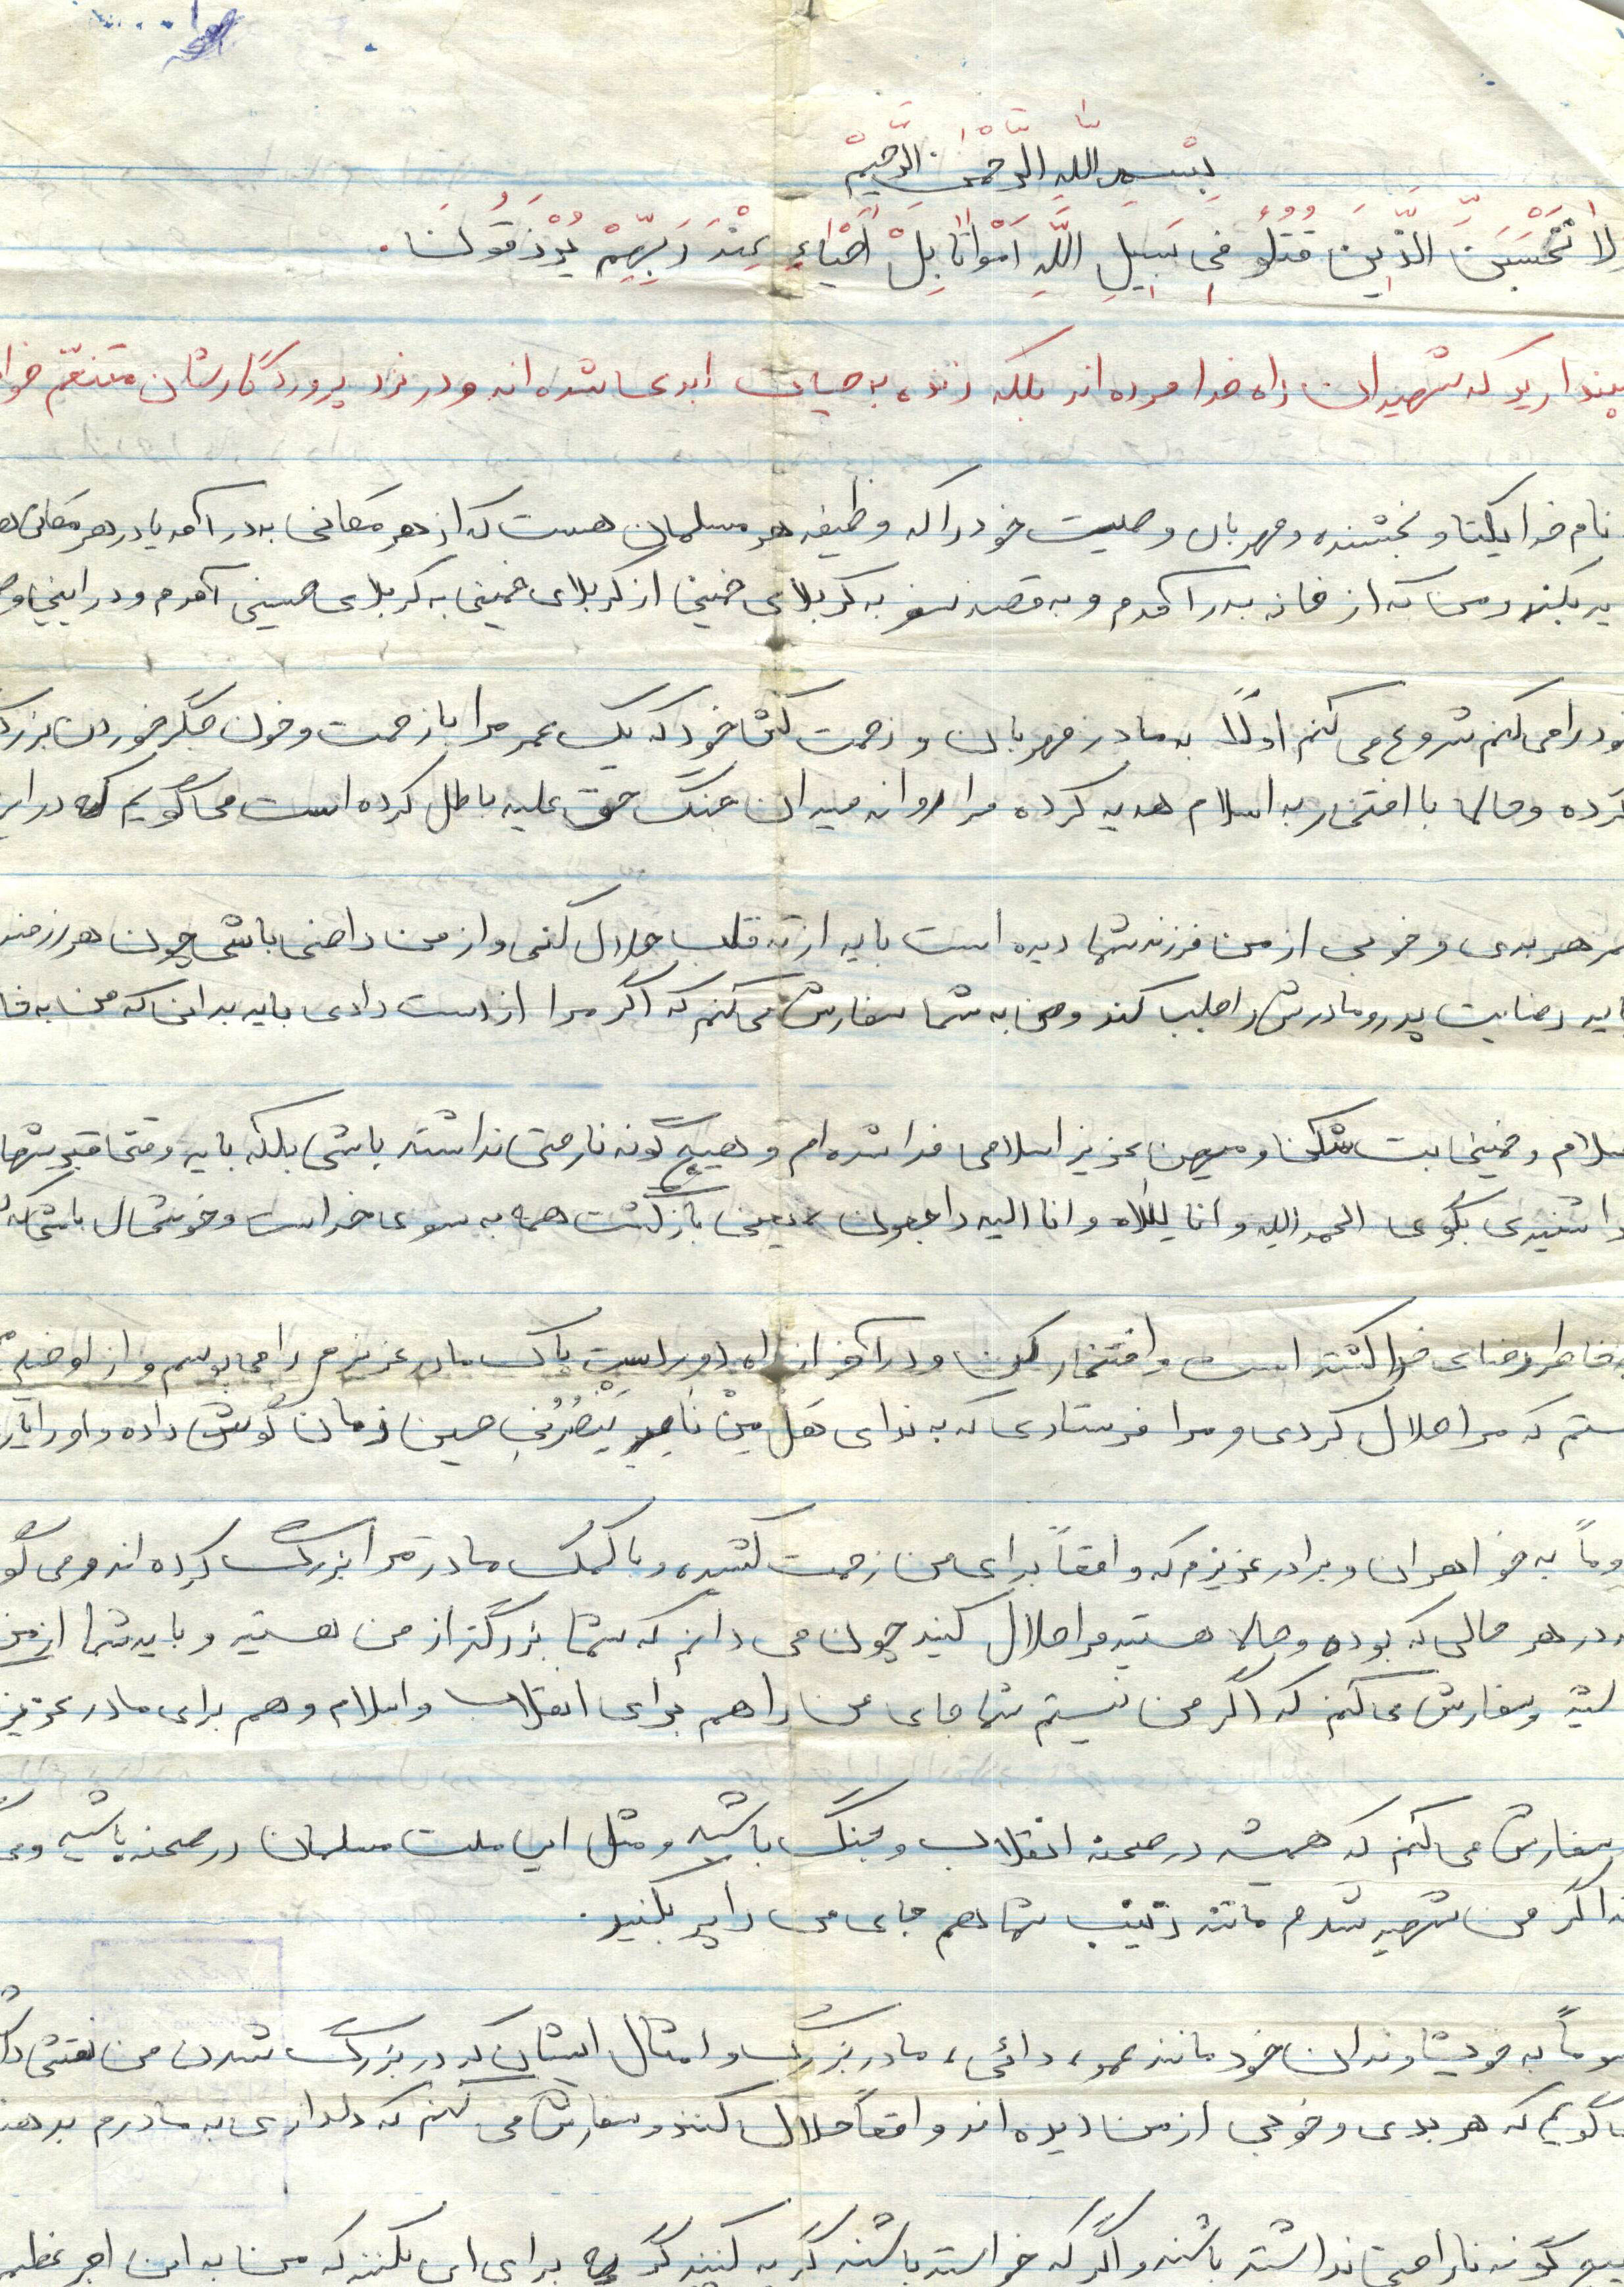 بِسْمِ اللَّهِ الرَّحْمٰنِ الرَّحِيمْ
لا تَحْسَبَنَ الَّذِّينَ قُتِلُو فِي سَبِيلِ اللَّهِ اَمْوٰاتا بِلْ اَحْيٰاءٍ عِنْدَ رَبِهِّمْ يُوْزَقُونَ .
پندارید که شهیدان راه خدا مرده اند بلکه زنده به حیات ابدی شده اند و در نزد پروردگارشان متنعّم
نام خدا یکتا و بخشنده و مهربان وصیت خود را که وظیفه هر مسلمان هست که از هر مکانی به در آمد یا در هر مکان
بکند و من که از خانه بدر آمدم و به قصد سفر به کربلای خمینی از کربلای خمینی به کربلای حسینی آمدم و در اینجا
را می کنم شروع می کنم اولاً به مادر مهربان و زحمت کش خود که یک عمر مرا با زحمت و خون جگر خوردن بزرگ
کرده و حالا با افتخار به اسلام هدیه کرده مرا روانه میدان جنگ حق علیه باطل کرده است می گویم که در این
هر بدی و خوبی از من فرزند شما دیده است باید از ته قلب حلال کنی و از من راضی باشی چون هر رزمنده
باید رضایت پدر و مادرش را جلب کند و من به شما سفارش می کنم که اگر مرا از دست دادی باید بدانی که من به
اسلام و خمینی بت شکن و میهن عزیز اسلامی فدا شده ام و هیچ گونه ناراحتی نداشته باشی بلکه باید وقتی خبر شهادت
را شنیدی بگوی الحمد الله و انا لللاه و انا الیه راجعون یعنی بازگشت همه به سوی خداست و خوشحال باشی که
خاطر رضای خدا کشته است و افتخار کن و در آخر از راه دور دست پاک مادر عزیزم را می بوسم و از او
هستم که مرا حلال کردی و مرا فرستادی که به ندای هَل مِنْ ناصِرٍ يَنْصُرُنِي حسین زمان گوش داده و او را
دوماً به خواهران و برادر عزیزم که واقعاً برای من زحمت کشیده و با کمک مادر مرا بزرگ کرده اند و می
در هر حالی که بوده و حالا هستید مرا حلال کنید چون می دانم که شما بزرگتر از من هستید و باید شما از من
و سفارش می کنم که اگر من نیستم شما جای من را هم برای انقلاب و اسلام و هم برای مادر عزیز
سفارش می کنم که همیشه در صحنه انقلاب و جنگ باشید و مثل این ملت مسلمان در صحنه باشید
اگر من شهید شدم مانند زینب شما هم جای من را پر بکنید .
سوماً به خویشاوندان خود مانند عمو ، دائی ، مادر بزرگ و امثال ایشان که در بزرگ شدن من نقشی
می گویم که هر بدی و خوبی از من دیده اند واقعاً حلال کنند و سفارش می کنم که دلداری به مادرم بدهند
هیچ گونه ناراحتی نداشته باشند و اگر که خواسته باشند گریه کنند برای این بکنند که من به این اجر عظیم